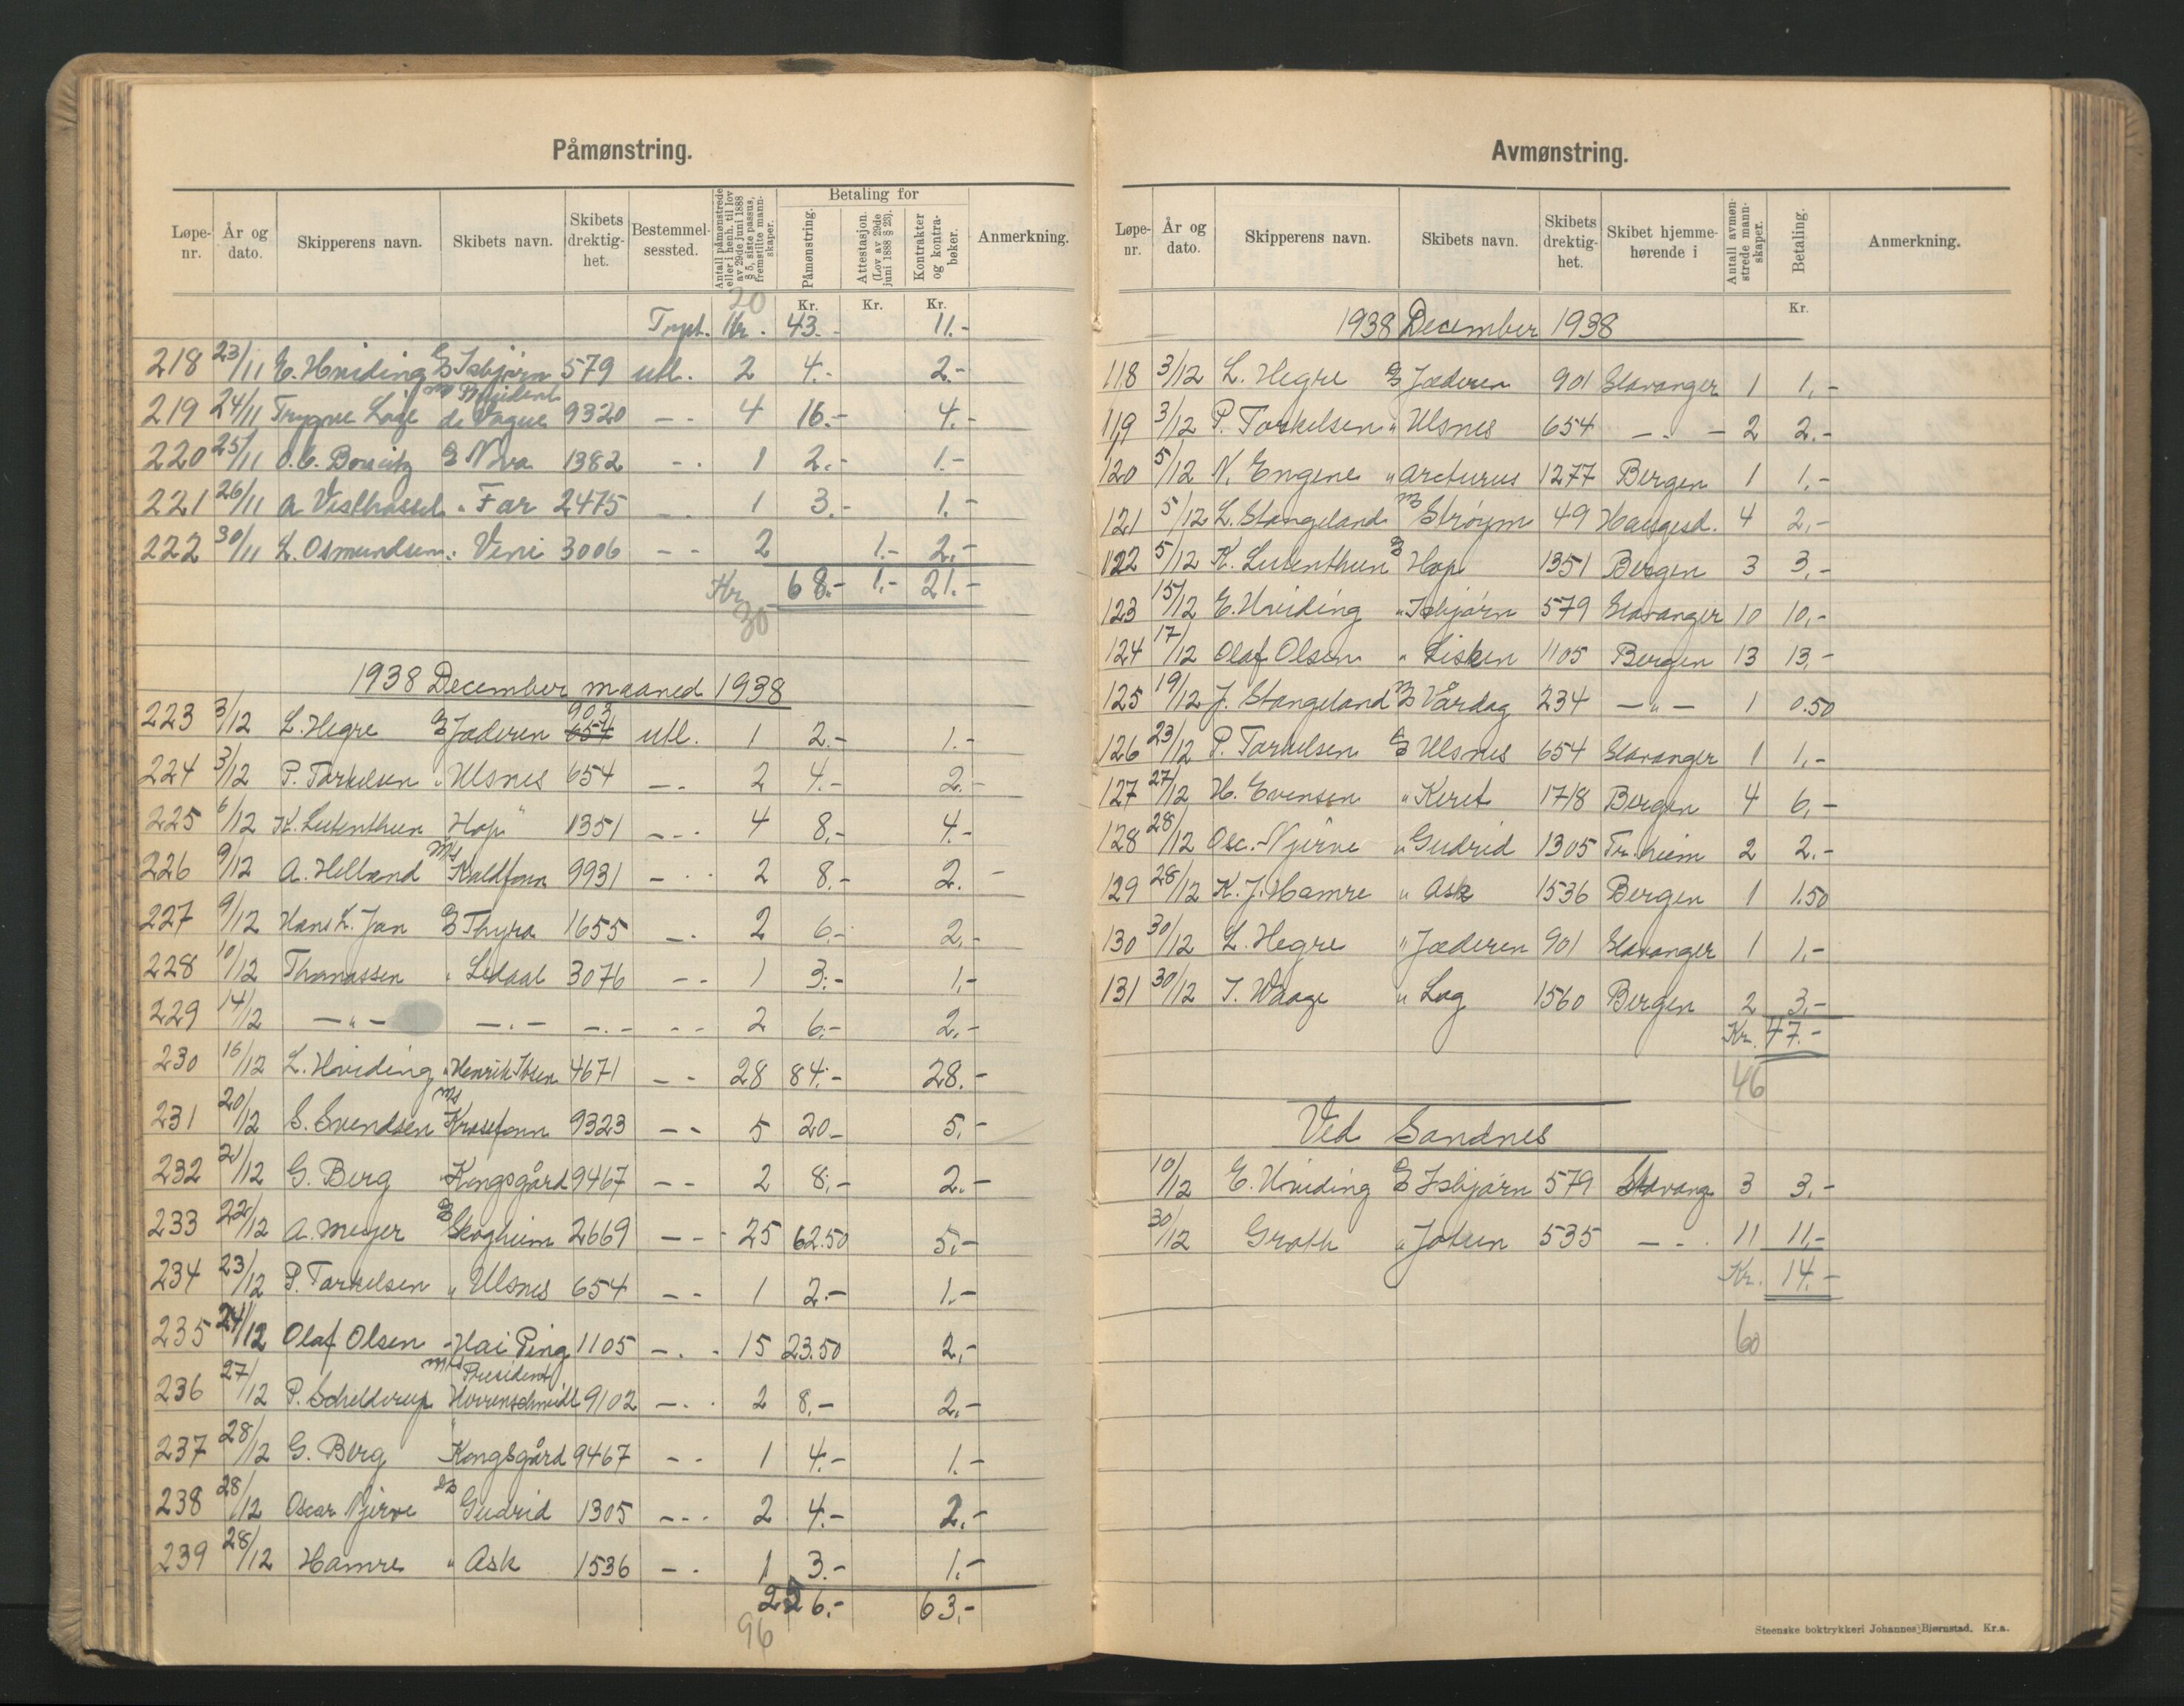 Påmønstring.
Løpe-nr. År og dato. Skipperens navn. Skibets navn. Skibets drektig-het. Bestemmel-sessted. Antall påmønstrede eller i henh. til lov av 29de juni 1888 § 5, siste passus, fremstilte mann-skaper. Betaling for Påmønstring. Attestasjon. (Lov av 29de juni 1888 § 23). Kontrakter og kontra-bøker. Anmerkning.
20 Kr. Kr. Kr.
Trpt. Kr. 43.- 11.-
218 23/11 E. Hviding Isbjørn 579 utl. 2 4.- 2.-
219 24/11 Trygve President de Vogue 9320 - - 4 16.- 4.-
220 25/11 O. C. Nova 1382 - - 1 2.- 1.-
221 26/11 A " Far 2475 - 1 3.- 1.-
222 30/11 L. Osmundsen " Veni 3006 - - 2 1.- 2.-
Kr 68.- 1.- 21.-
30
1938 December maaned 1938
223 3/12 L. Hegre Jæderen 903 654 utl. 1 2.- 1.-
224 3/12 P. Torkelsen " Ulsnes 654 - - 2 4.- 2.-
225 6/12 K. Lutenthun Hop " 1351 - - - 4 8.- 4.-
226 9/12 A. Helland M/s Kaldfonn 9931 - - - 2 8.- 2. -
227 9/12 Hans L. Jan Thyra 1655 - - 2 6.- 2.-
228 10/12 Thomassen " Ledaal 3076 - - 1 3.- 1.-
229 14/12 - " - - . - - . - - - 2 6.- 2.-
230 16/12 L. Hviding " Henrik Ibsen 4671 - - 28 84.- 28.-
231 20/12 S. Svendsen M/s Krosfonn 9323 - - 5 20- 5.-
232 21/12 G. Berg " Kongsgård 9467 - - 2 8.- 2.-
233 22/12 A. Meyer Skogheim 2669 - - - 25 62.50 5.-
234 23/12 P. Torkelsen " Ulsnes 654 - - 1 2.- 1.-
235 24/12 Olaf Olsen " Hai Ping 1105 - . - 15 23.50 2.-
236 27/12 P. Schelderup President Herrenschmidt 9102 - . . 2 8.- 2.-
237 28/12 G. Berg " Kongsgård 9467 - - 1 4.- 1.-
238 28/12 Oscar Njerve Gudrid 1305 - - - 2 4.- 2.-
239 28/12 Hamre " Ask 1536 - - 1 3.- 1.-
226.- 63.-
96
Avmønstring.
Løpe-nr. År og dato. Skipperens navn. Skibets navn. Skibets drektig-het. Skibet hjemme-hørende i Antall avmøn-strede mann-skaper. Betaling. Anmerkning.
Kr.
1938 December 1938
118 3/12 L. Hegre Jæderen 901 Stavanger 1 1.-
119 3/12 P. Torkelsen " Ulsnes 654 - . - 2 2.-
120 5/12 N. Engene " Arcturus 1277 Bergen 1 1.-
121 5/12 L. Stangeland Strøym 49 Haugesd. 4 2.-
122 5/12 K. Lutenthun Hop 1351 Bergen 3 3.-
123 15/12 E. Hviding " Isbjørn 579 Stavanger 10 10.-
124 17/12 Olaf Olsen " Lisken 1105 Bergen 13 13.-
125 19/12 J. Stangeland Vårdag 234 - " - 1 0.50
126 23/12 P. Torkelsen Ulsnes 654 Stavanger 1 1.-
127 27/12 H. Evensen " Keret 1718 Bergen 4 6.-
128 28/12 Osc. Njerve " Gudrid 1305 Tr.heim 2 2.-
129 28/12 K. J. Hamre " Ask 1536 Bergen 1 1.50
130 30/12 L. Hegre " Jæderen 901 Stavanger 1 1.-
131 30/12 T. Waage " Log 1560 Bergen 2 3.-
Kr. 47.-
46
Ved Sandnes
10/12 E. Hviding Isbjørn 579 Stavang 3 3.-
30/12 Groth " Jotun 535 - - . 11 11.-
Kr. 14.-
60
Steenske boktrykkeri Johannes Bjørnstad. Kr.a.